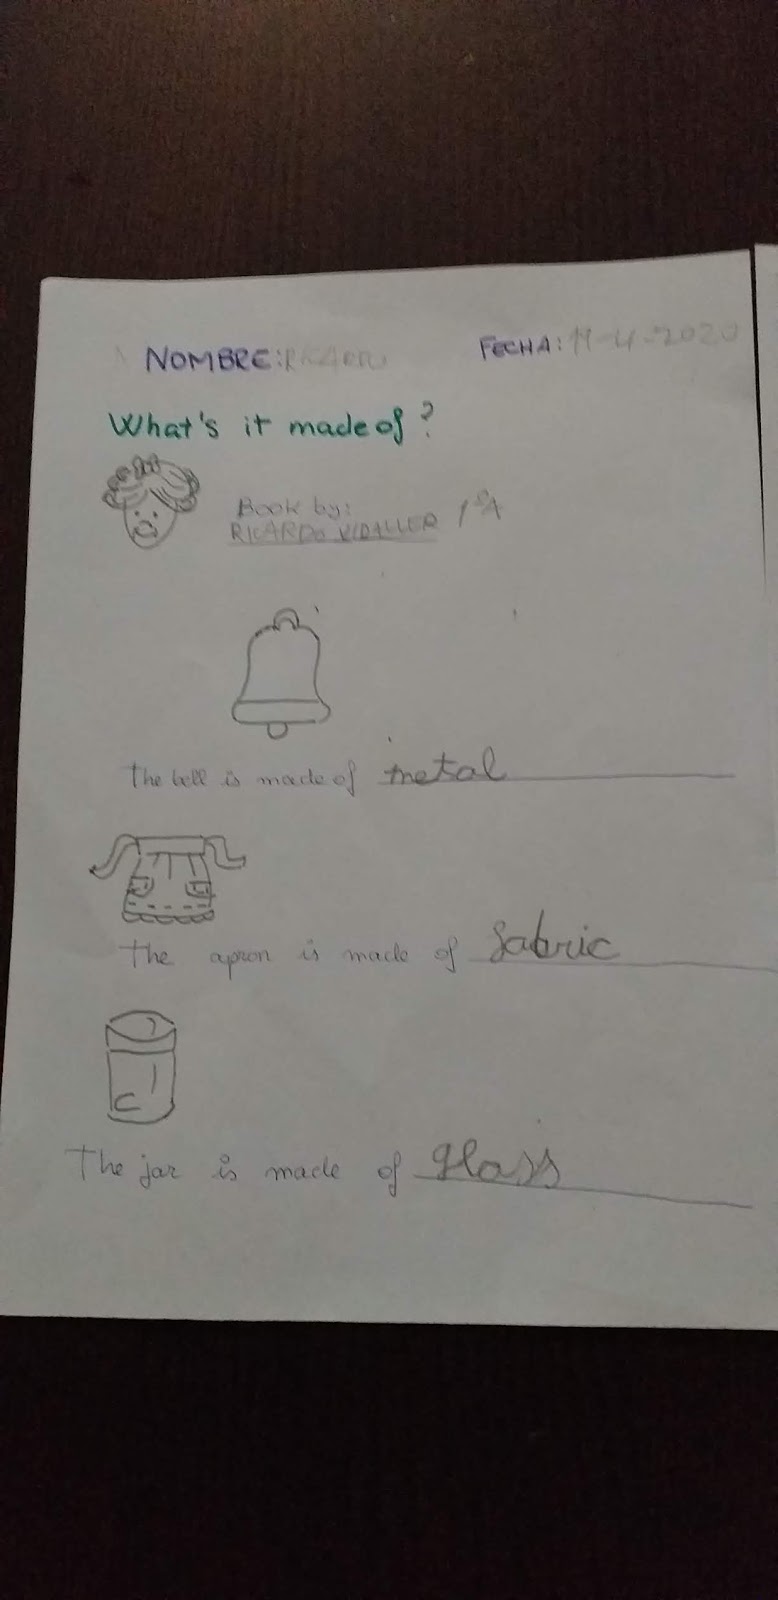 NOMBRE: RICARDO FECHA: 19-4-2020
What's it made of?
Book by:
RICARDO VIDALLER 1ºA
The bell is made of metal
The apron is made of fabric
The jar is made of glass